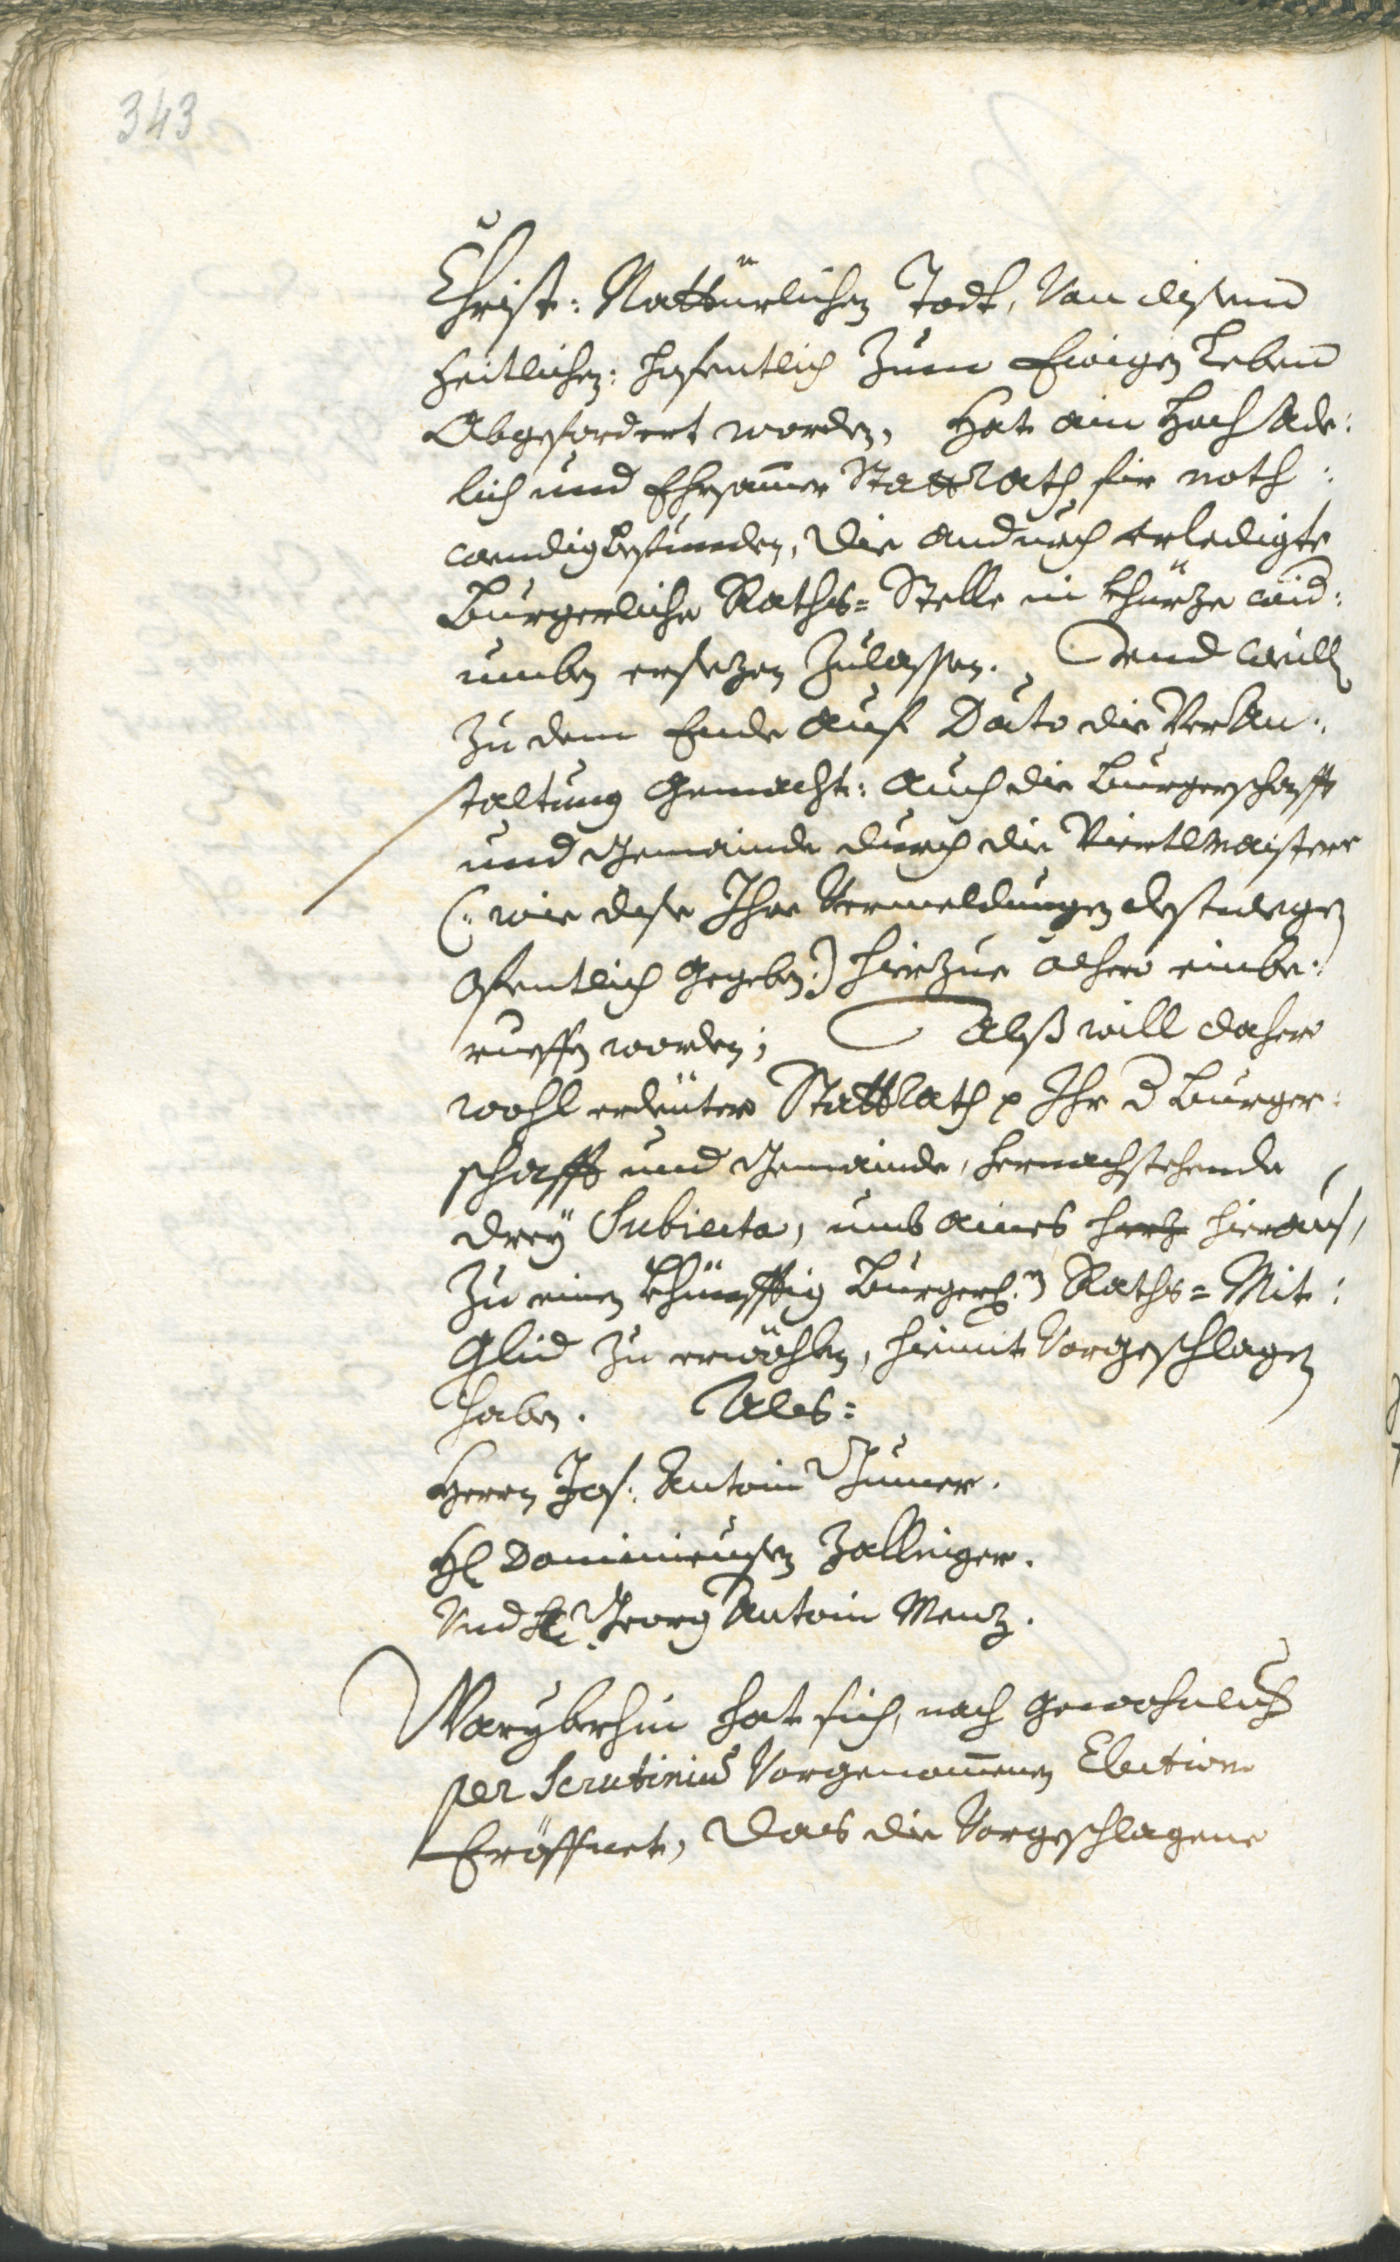 343
Christ: Nattürlichen Todt, Von disem
zeitlichen: hofentlich Zum Ewigen Leben
Abgefordert worden, Hat ain Hoch Ade:
lich und Ehrsamer Stattrath für noth:
wendig befunden, die andurch erledigte
Burgerliche Raths=Stelle in Khürze wid:
umben ersezen Zulassen. Und weill
Zu dem Ende auf Dato die Veran:
staltung gemacht: auch die Burgerschafft
und Gemainde durch die Viertlmaistere
(: wie dise Ihre Vermeldungen destwegen
ofentlich gegeben :) hierzue alhero einbe:
rueffen worden; Alß will dahero
wohl erdeüter Stattrath p Ihr d Burger:
schafft und Gemainde, hernachstehende
drey Subiecta, umb aines hierauß,
Zu einen khünfftig Burgerl:n Raths=Mit:
Glid Zu erwöhlen, hiemit Vorgeschlagen
haben. Als:
Herrn Jos: Antoni Thurner.
H: Dominicusen Zallinger.
Und H: Georg Antoni Menz.
Woryberhin hat sich, nach gewohnlich
per Scrutinium Vorgenommenen Election
Eröffnet, das die Vorgeschlagene